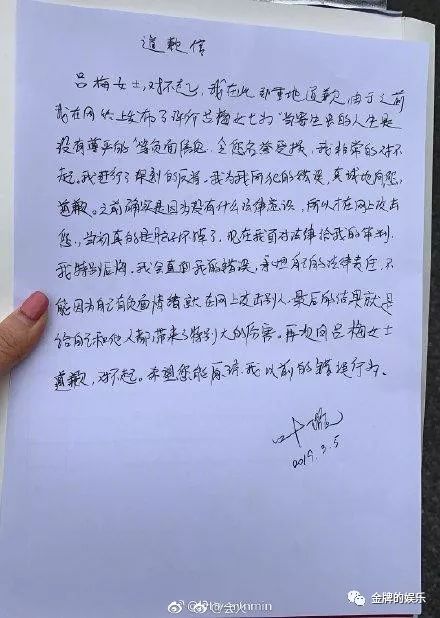 道歉信
吕梅女士,对不起,我在此郑重地道歉,由于之前
我在网络上发布了评价吕梅女士为"当寄生虫的人生是
没有尊严的"等负面信息,令您名誉受损,我非常的对不
起。我进行了深刻的反省。我为我所犯的错误,真诚地向您
道歉。之前确实是因为没有什么法律意识,所以才在网上攻击
您,当初真的是脑子坏掉了。现在我面对法律给我的审判,
我特别后悔。我会直面我的错误,承担自己的法律责任,不
能因为自己有负面情绪就在网上攻击别人,最后的结果就是
给自己和他人都带来了特别大的伤害。再次向吕梅女士
道歉,对不起。希望您能原谅我以前的错误行为。
2019.3.5
金牌的娱乐